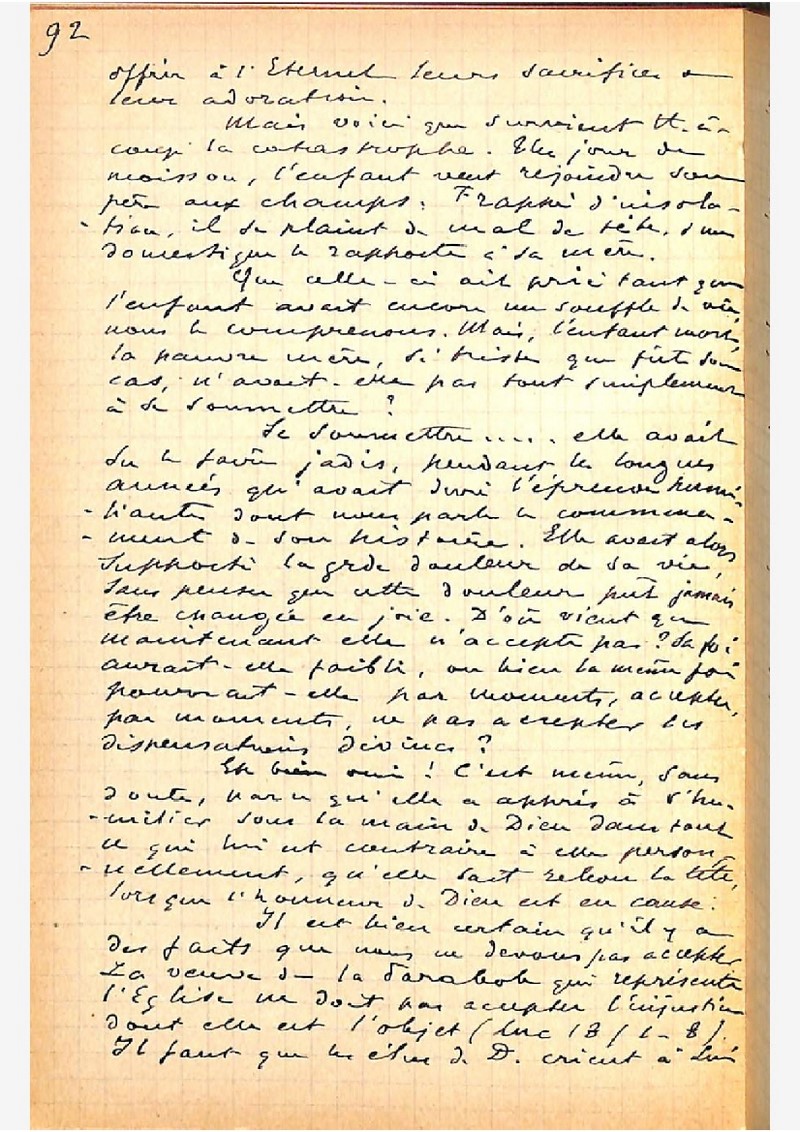 92
offrir à l'Eternel leurs sacrifices et
leur adoration.
Mais voici que survient tt-à-
coup la catastrophe. Un jour de
moisson, l'enfant veut rejoindre son
père aux champs. Frappé d'insola-
-tion, il se plaint de mal de tête, un
domestique le rapporte à sa mère.
Que celle-ci ait prié tant que
l'enfant avait encore un souffle de vie,
nous le comprenons. Mais, l'enfant mort,
la pauvre mère, si triste que fût son
cas, n'avait-elle pas tout simplement
à se soumettre ?
Se soumettre..... elle avait
su le faire jadis, pendant les longues
années qu'avait duré l'épreuve humi-
-liante dont nous parle le commence-
-ment de son histoire. Elle avait alors
supporté la grde douleur de sa vie,
sans penser que cette douleur pût jamais
être changée en joie. D'où vient que
maintenant elle n'accepte pas ? Sa foi
aurait-elle faibli, ou bien la même foi
pourrait-elle par moments, accepter,
par moments, ne pas accepter les
dispensations divines ?
Eh bien oui ! C'est même, sans
doute, parce qu'elle a appris à s'hu-
-milier sous la main de Dieu dans tout
ce qui lui est contraire à elle person-
-nellement, qu'elle sait relever la tête,
lorsque l'honneur de Dieu est en cause.
Il est bien certain qu'il y a
des faits que nous ne devons pas accepter
La veuve de la parabole qui représente
l'Eglise ne doit pas accepter l'injustice
dont elle est l'objet (Luc 18/1-8).
Il faut que les élus de D. crient à Lui